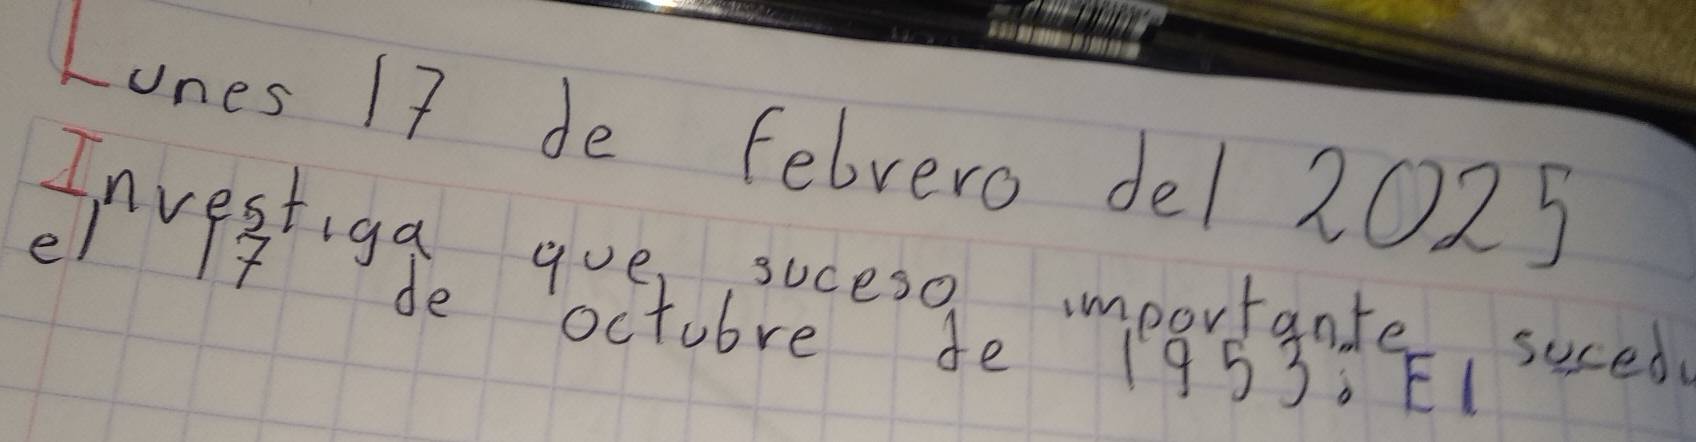 Lunes 17 de Febrero del 2025
Investiga que suceso importante
el 17 de octubre de 1953: El